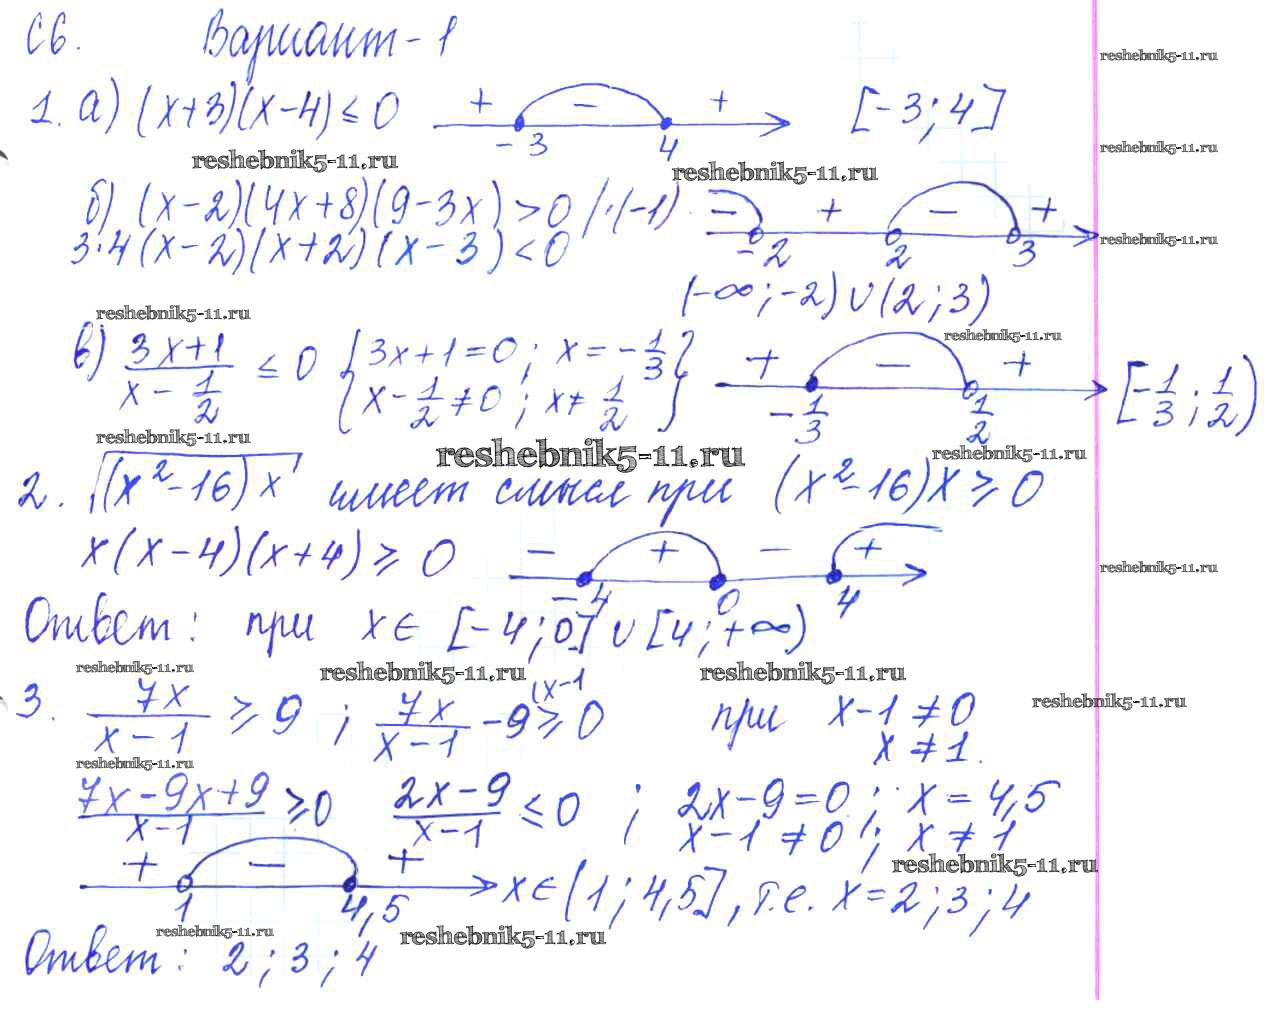 С6. Вариант-1
reshebnik5-11.ru
1. а) (x+3)(x-4) ≤ 0 + - + -3 4 [-3; 4]
reshebnik5-11.ru reshebnik5-11.ru reshebnik5-11.ru
б) (x-2)(4x+8)(9-3x) > 0 /·(-1) - + - + -2 2 3
3·4(x-2)(x+2)(x-3) < 0 reshebnik5-11.ru
(-∞; -2) ∪ (2; 3)
reshebnik5-11.ru reshebnik5-11.ru
в) (3x+1)/(x - 1/2) ≤ 0 { 3x+1=0; x = -1/3 } + - + -1/3 1/2 [-1/3; 1/2)
{ x - 1/2 ≠ 0; x ≠ 1/2 }
reshebnik5-11.ru reshebnik5-11.ru reshebnik5-11.ru
2. √((x²-16)x) имеет смысл при (x²-16)x ≥ 0
x(x-4)(x+4) ≥ 0 - + - + -4 0 4
reshebnik5-11.ru
Ответ: при x ∈ [-4; 0] ∪ [4; +∞)
reshebnik5-11.ru reshebnik5-11.ru reshebnik5-11.ru
3. 7x/(x-1) ≥ 9; 7x/(x-1) - 9 (x-1 ≥ 0 при x-1 ≠ 0
reshebnik5-11.ru
x ≠ 1.
reshebnik5-11.ru
(7x-9x+9)/(x-1) ≥ 0 (2x-9)/(x-1) ≤ 0; 2x-9=0; x = 4,5
x-1 ≠ 0; x ≠ 1
reshebnik5-11.ru
+ - + 1 4,5 x ∈ (1; 4,5], т.е. x = 2; 3; 4
reshebnik5-11.ru reshebnik5-11.ru
Ответ: 2; 3; 4